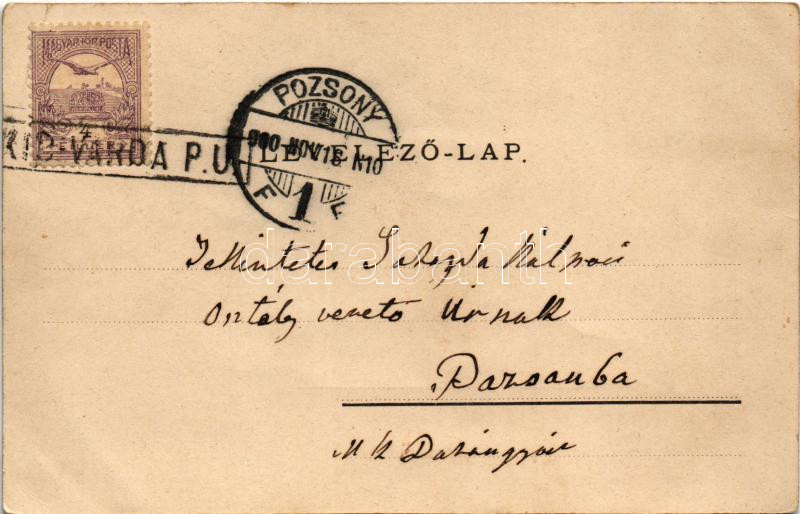 MAGYAR KIR. POSTA
4
KIS-VÁRDA P.U.
POZSONY
900 NOV 18
F 1
LEVELEZŐ-LAP.
Tekintetes
Osztály vezető Úrnak
Pozsonba
M k Dohángyár
darabanth